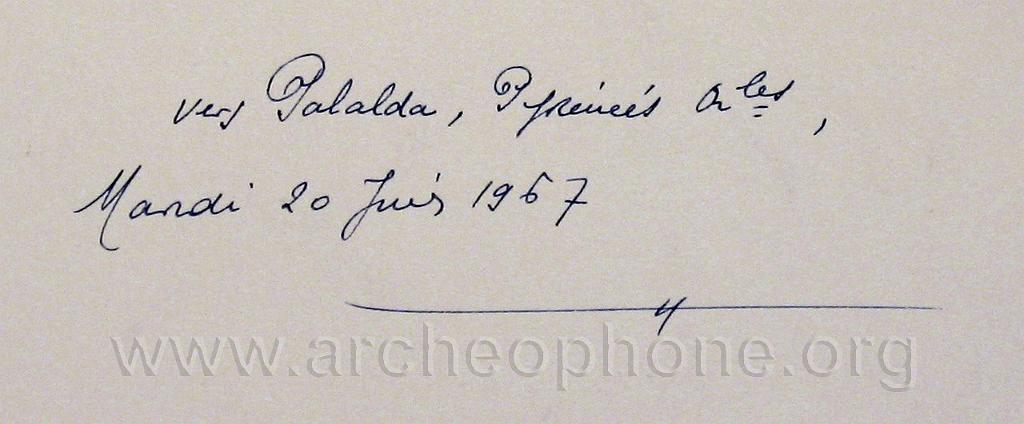 vers Palalda, Pyrénées Or.les,
Mardi 20 Juin 1967
www.archeophone.org